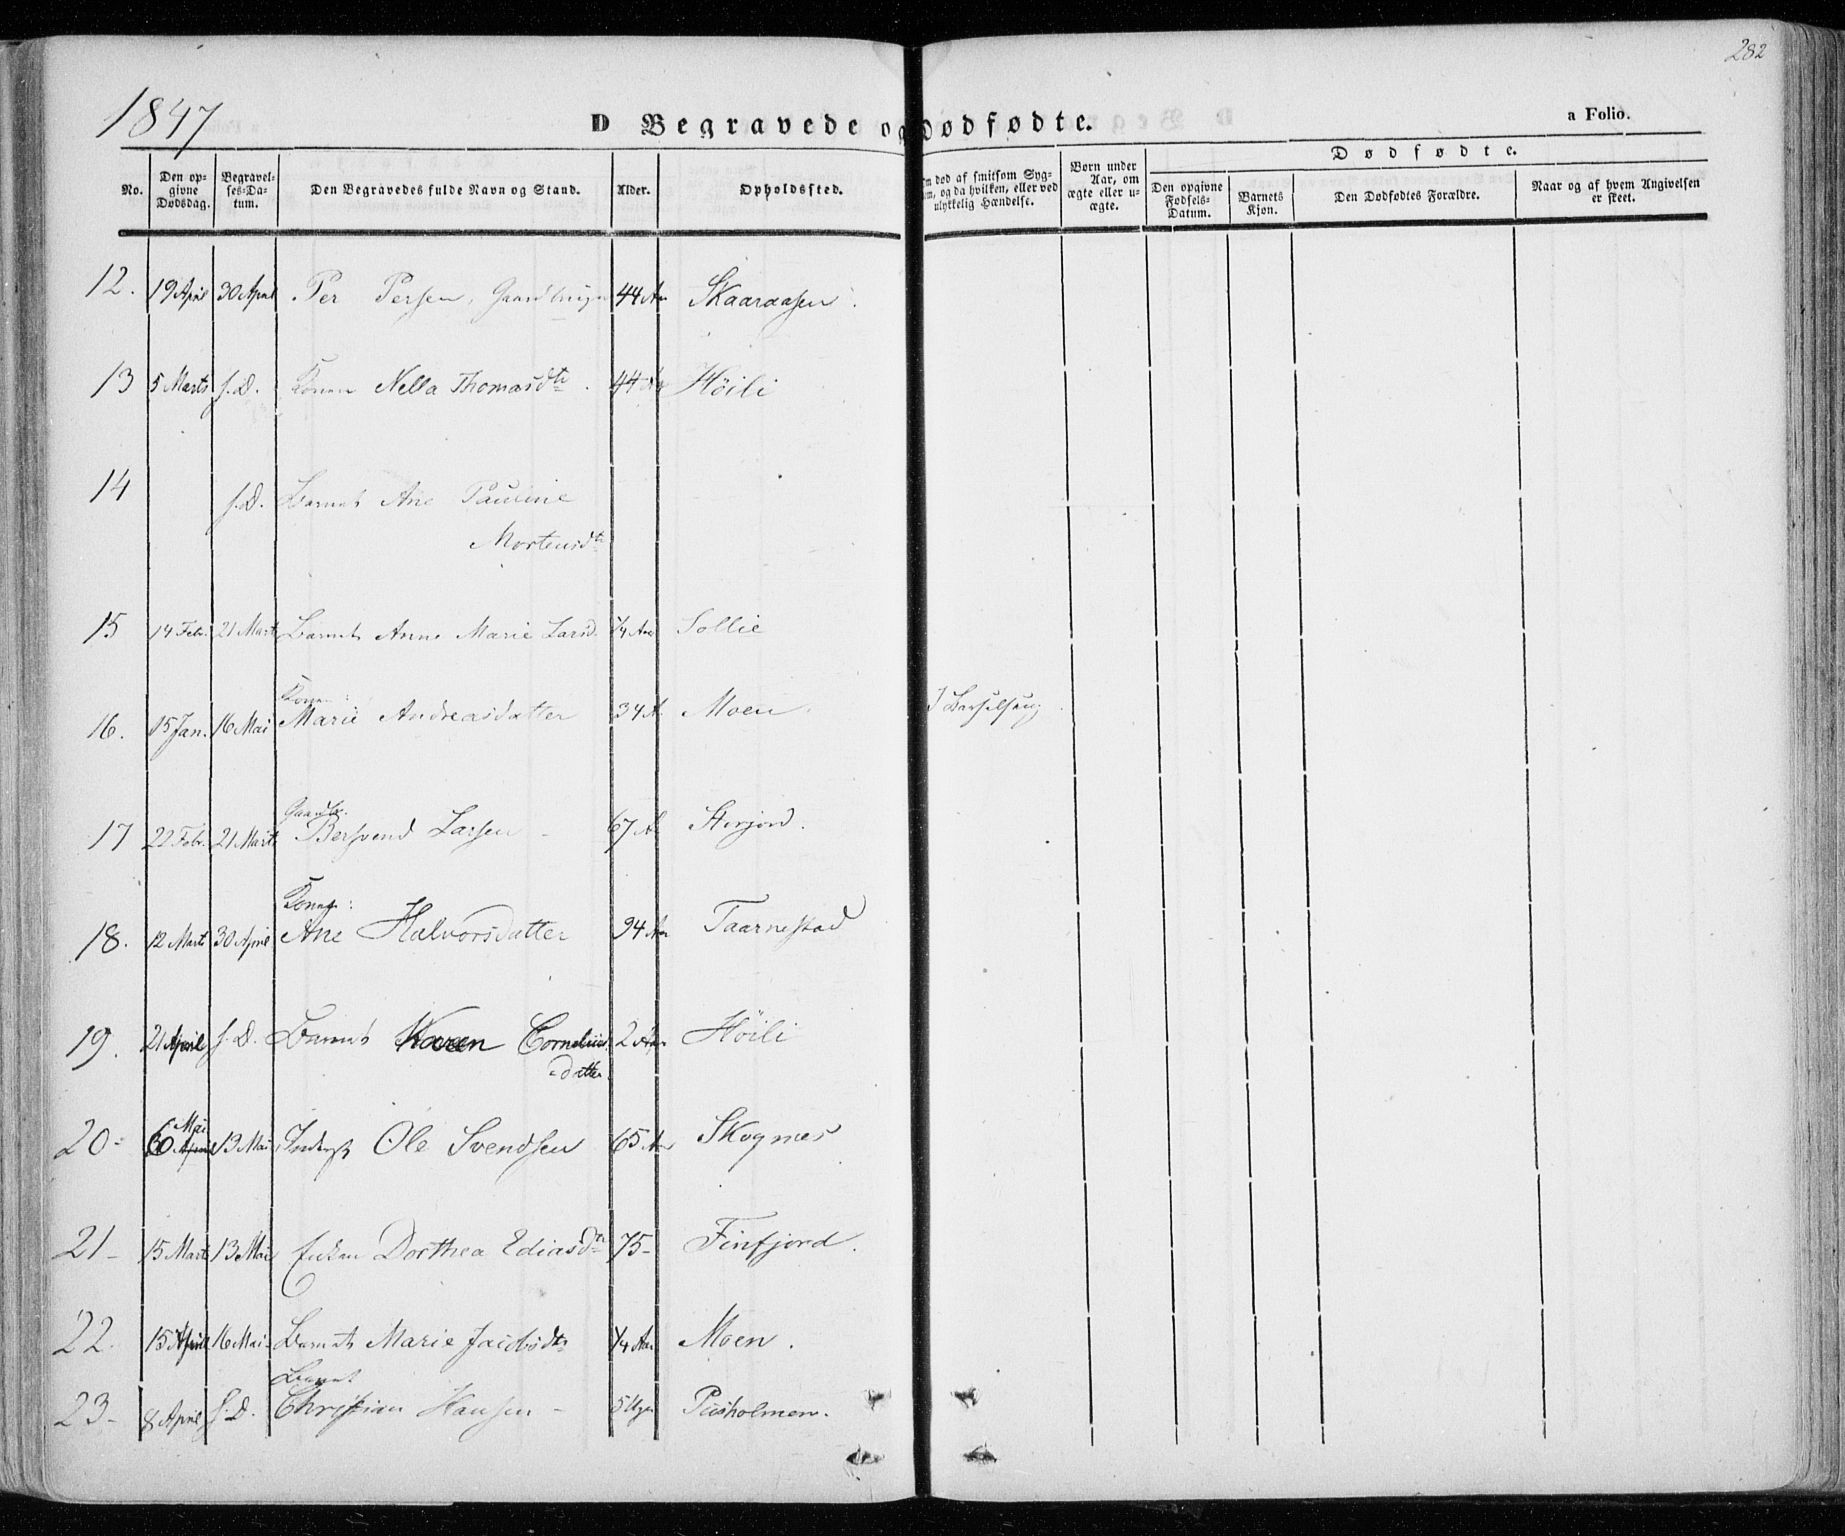 282
1847
D Begravede og Dødfødte.
a Folio.
No.
Den op-
givne
Dødsdag.
Begravel-
ses-Da-
tum.
Den Begravedes fulde Navn og Stand.
Alder.
Opholdssted.
død af smitsom Syg-
og da hvilken, eller ved
ulykkelig Hændelse.
Børn under
Aar, om
ægte eller u-
ægte.
Dødfødte.
Den opgivne
Fødsels-
Datum.
Barnets
Kjøn.
Den Dødfødtes Forældre.
Naar og af hvem Angivelsen
er skeet.
12. 19 April 30 April Per Persen, 44 Aar Skaaraasen.
13 5 Marts s.D. Konen Nella Thomasdtr. 44 Aar Höili
14 s.D. Barnet Ane Pauline
Mortensdtr
15 14 Febr. 21 Marts Barnet Anne Marie Larsd. 1/4 Aar Sollie
Konen:
16. 15 Jan. 16 Mai Marie Andreasdatter 34 A. Moen. I Barselseng
Gaardbr.
17 22 Febr. 21 Marts Bersvend Larsen - 67 A. Storjord.
Kone:
18. 12 Marts 30 April Ane Halvorsdatter 94 Aar Taarnestad
19. 21 April s.D. Barnet Karen Cornelius 2 Aar Höili
datter.
Mai
20- 6 April 13 Mai Inderst Ole Svendsen 65 Aar Skognes
21- 15 Marts 13 Mai Enken Dorthea Ediasdtr 75- Finfjord.
22. 15 April 16 Mai- Barnet Marie Jacobsdtr 1/4 Aar Moen.
Barnet
23- 8 April s.D. Christian Hansen - 5 Uger Pusholmen.